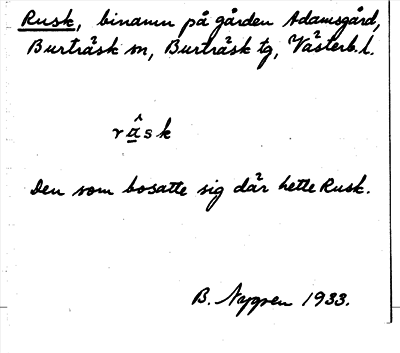 Rusk, binamn på gården Adamsgård,
Burträsk sn, Burträsk tg, Västerb. l.
Den som bosatte sig där hette Rusk.
B. Nygren 1933.